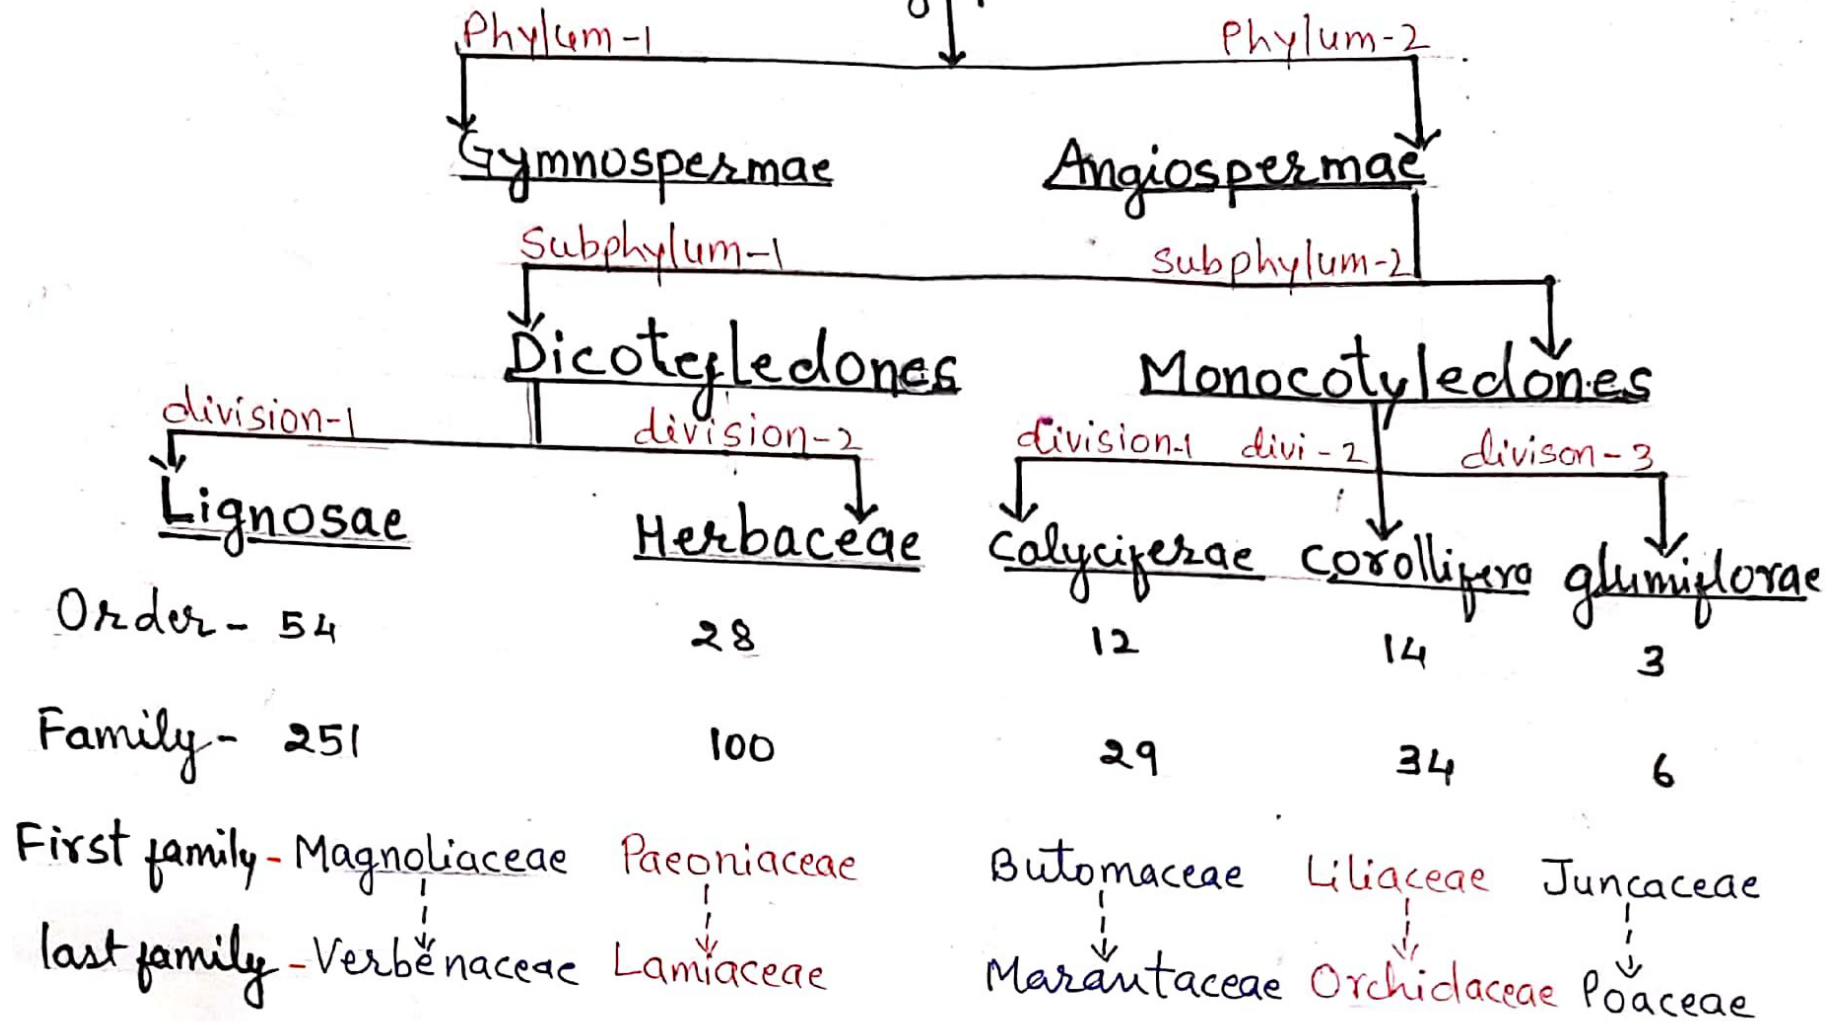 Phylum-1 Phylum-2
Gymnospermae Angiospermae
Subphylum-1 Subphylum-2
Dicotyledones Monocotyledones
division-1 division-2 division-1 divi-2 divison-3
Lignosae Herbaceae Calyciferae corollifera glumiflorae
Order- 54 28 12 14 3
Family- 251 100 29 34 6
First family- Magnoliaceae Paeoniaceae Butomaceae Liliaceae Juncaceae
last family- Verbenaceae Lamiaceae Marautaceae Orchidaceae Poaceae